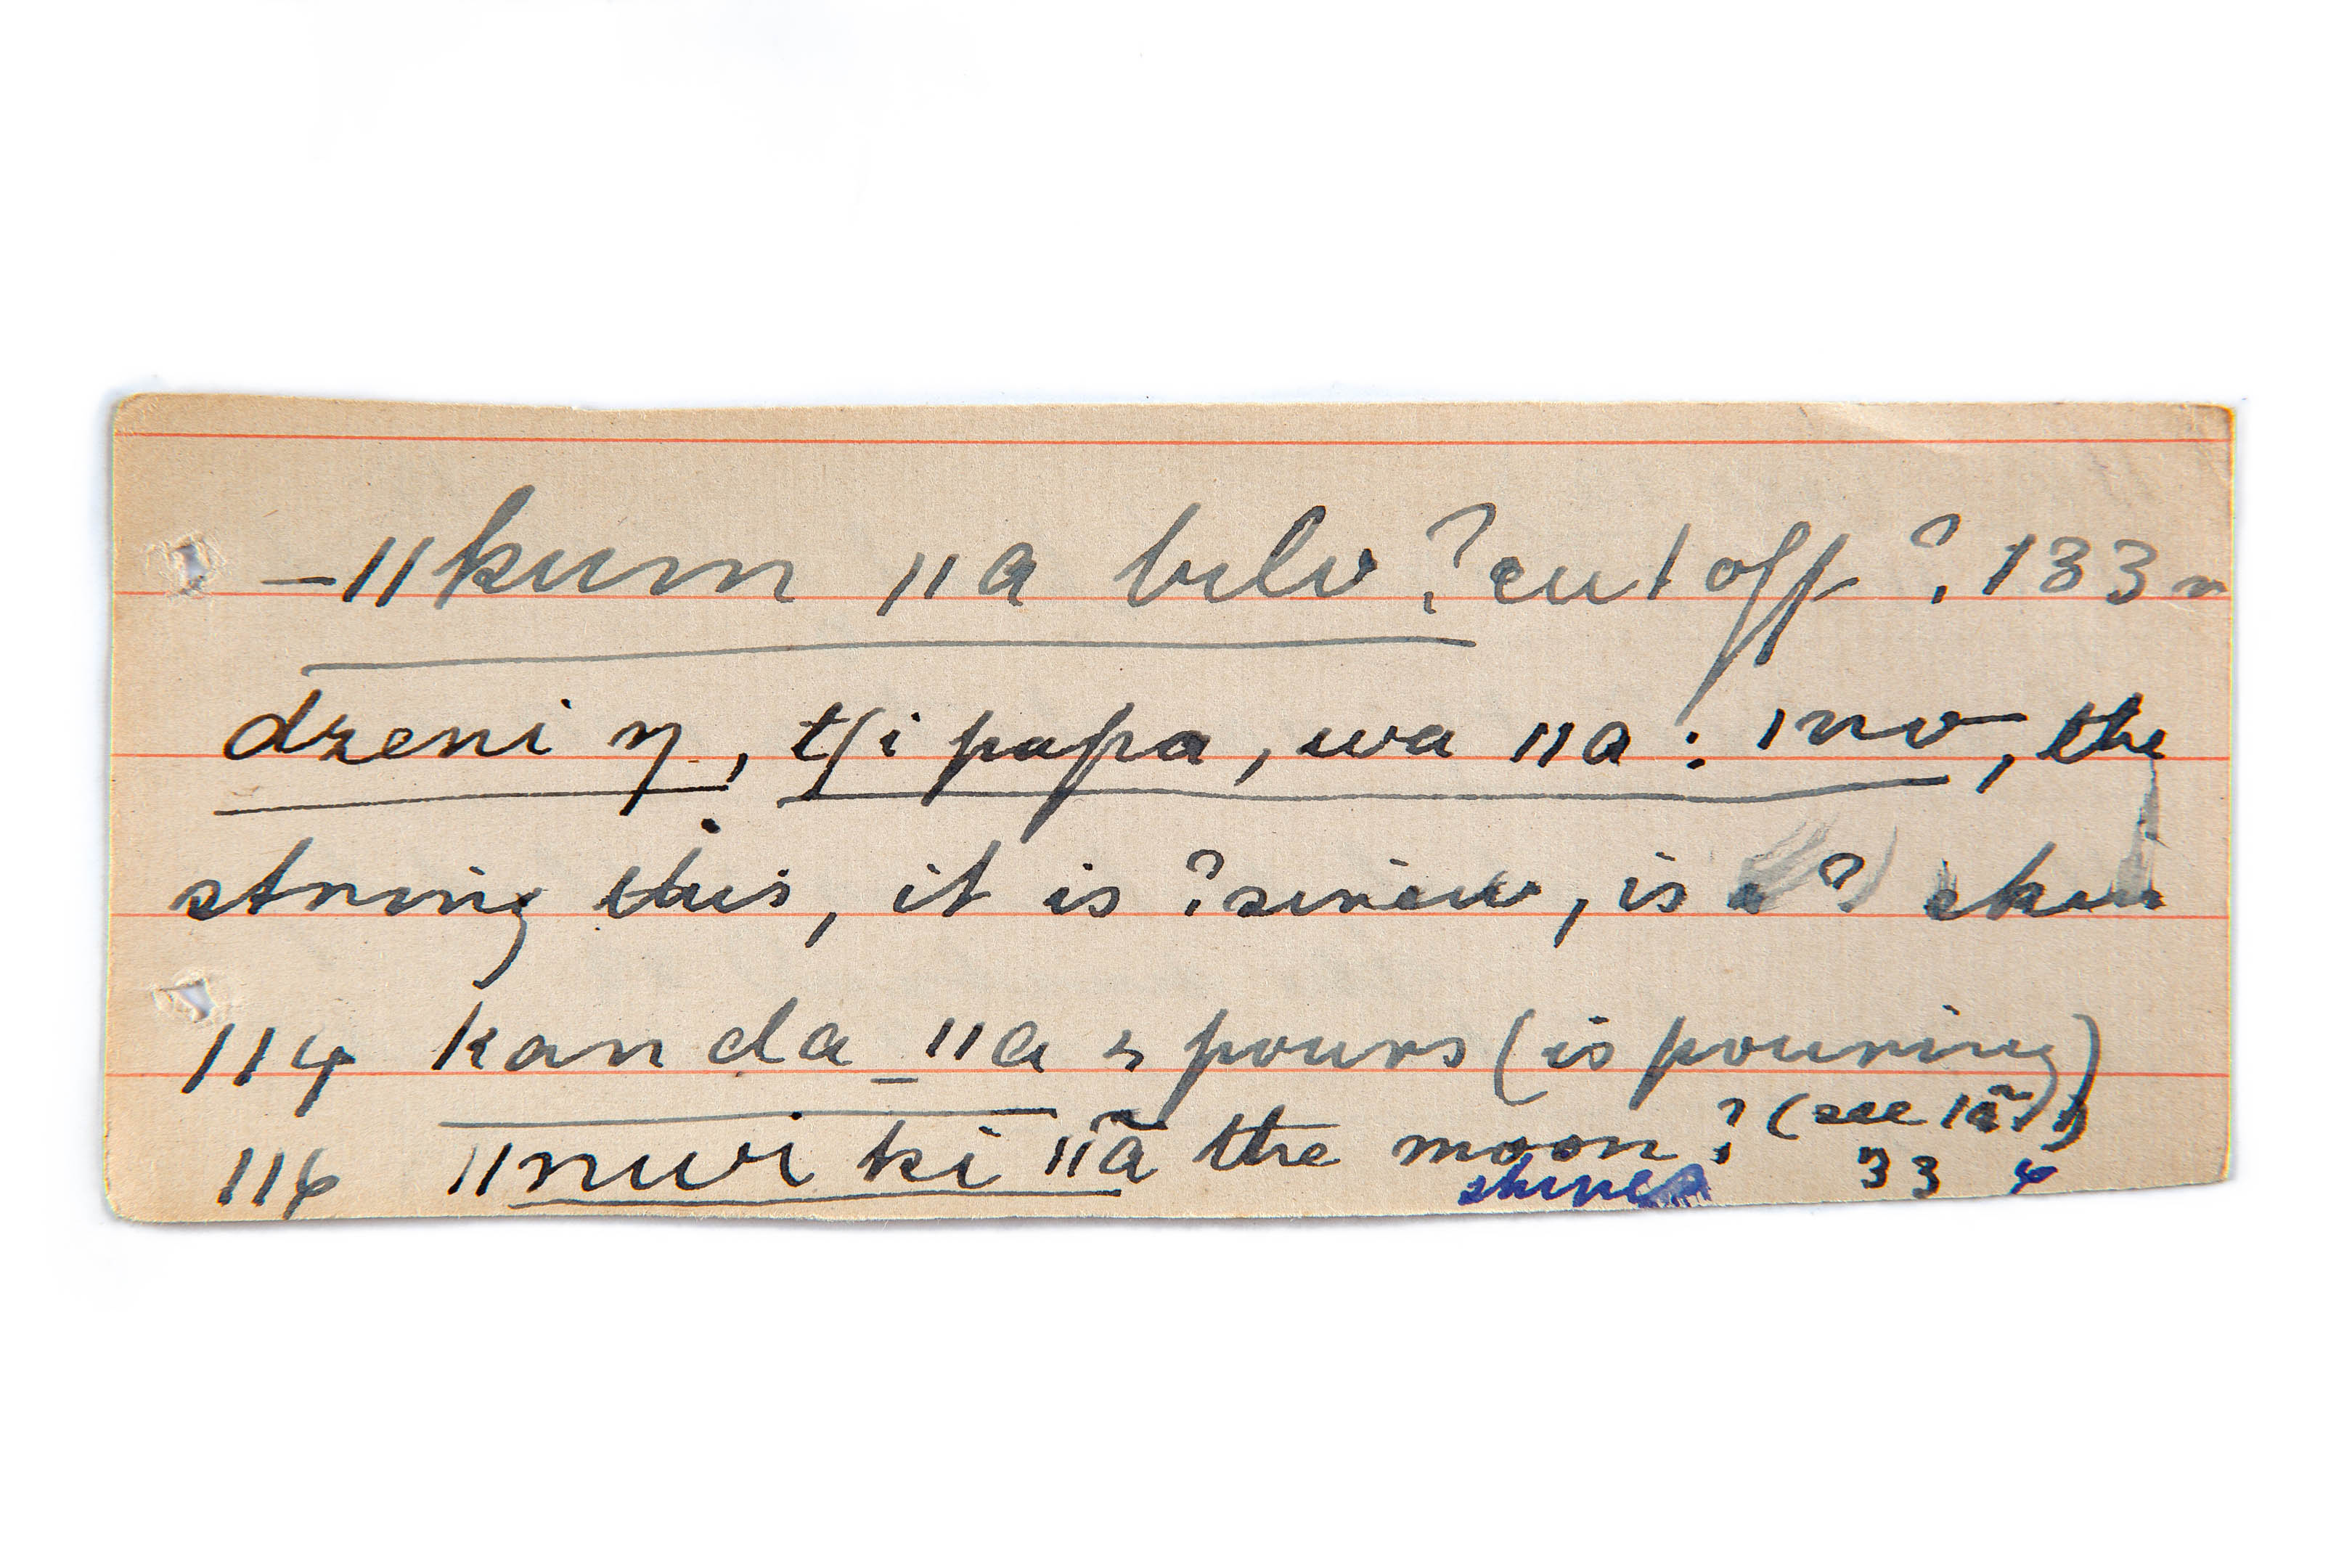 –ǁkum ǁa bilv ?cut off?. 133
dzeni ŋ, tʃi papa, wa ǁa: ǀno, the
string this, it is ?sinew, is a? skin
114 kanda_ǁa s pours (is pouring)
116 ǁnuvi ki ǁã the moon? (see ǀã:)
shines 33 4